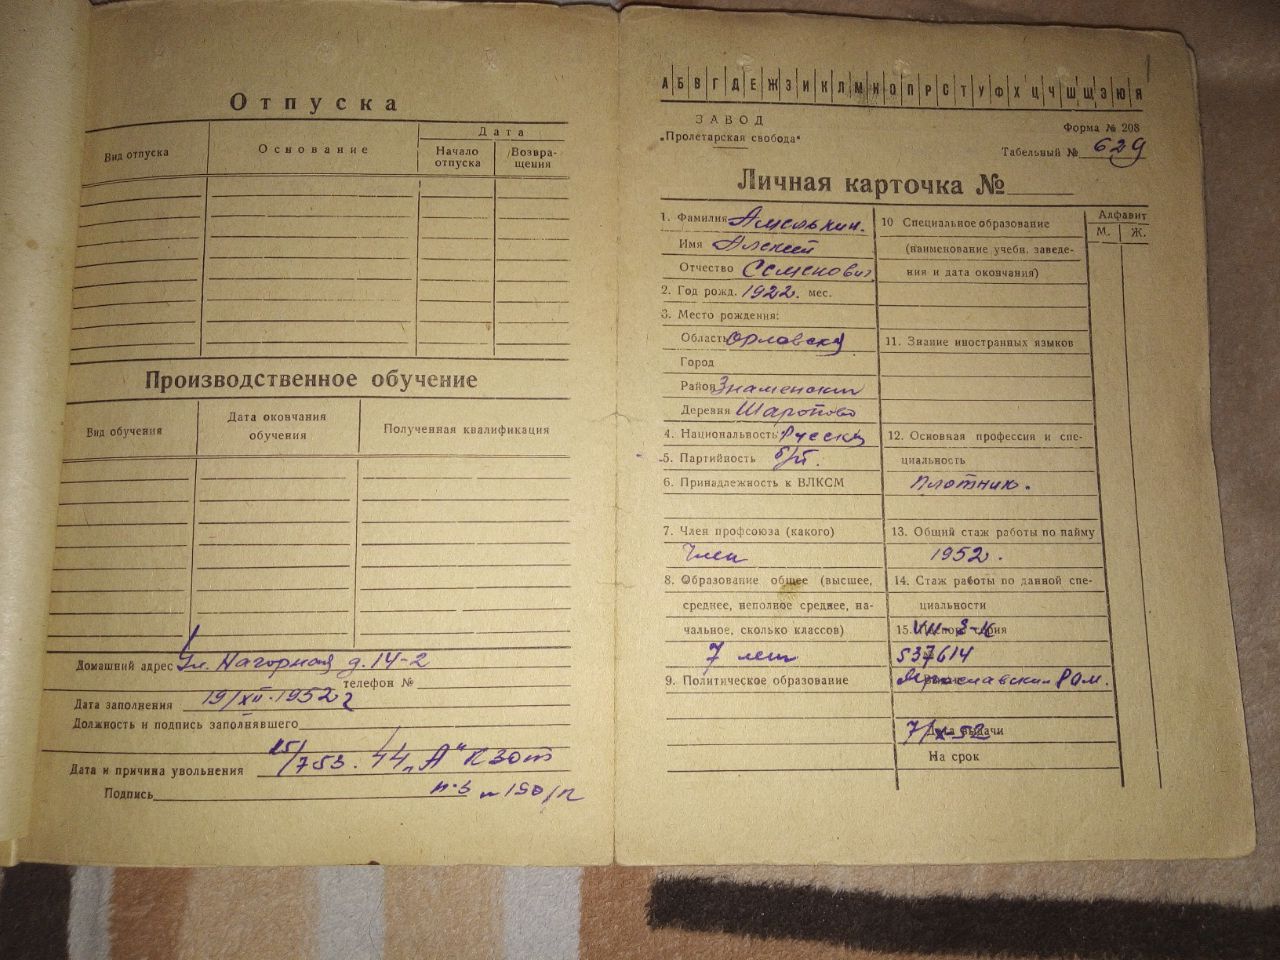 Отпуска
Вид отпуска
Основание
Дата
Начало отпуска
Возвра-
щения
Производственное обучение
Вид обучения
Дата окончания
обучения
Полученная квалификация
Домашний адрес Ул. Нагорная д. 14-2
телефон №
Дата заполнения 19/XII-1952 г
Должность и подпись заполнявшего
Дата и причина увольнения 15/753. 44 „А" КЗот
Подпись
А Б В Г Д Е Ж З И К Л М Н О П Р С Т У Ф Х Ц Ч Ш Щ Э Ю Я
ЗАВОД
„Пролетарская свобода"
Форма № 208
Табельный № 629
Личная карточка №
1. Фамилия Амелькин.
Имя Алексей
Отчество Семенович
2. Год рожд. 1922. мес.
3. Место рождения:
Область Орловская
Город
Район Знаменский
Деревня Шаропово
4. Национальность Русский
5. Партийность б/п.
6. Принадлежность к ВЛКСМ
7. Член профсоюза (какого)
Член
8. Образование общее (высшее,
среднее, неполное среднее, на-
чальное, сколько классов)
7 лет
9. Политическое образование
10 Специальное образование
(наименование учебн. заведе-
ния и дата окончания)
11. Знание иностранных языков
12. Основная профессия и спе-
циальность
Плотник.
13. Общий стаж работы по найму
1952.
14. Стаж работы по данной спе-
циальности
15. Паспорт серия
537614
Ярославским РОМ.
7/X-52 Дата выдачи
На срок
Алфавит
М. Ж.